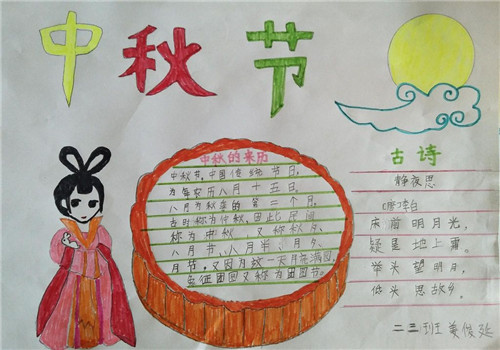 中秋节
中秋的来历
中秋节,中国传统节日,
为每农历八月十五日,
八月为秋季的第二个月,
古时称为仲秋,因此民间
称为中秋,又称秋夕、
八月节、八月半、月夕、
月节,又因月这一天月亮满圆,
象征团圆又称为团圆节。
古诗
静夜思
唐李白
床前明月光,
疑是地上霜。
举头望明月,
低头思故乡。
二三班姜俊延